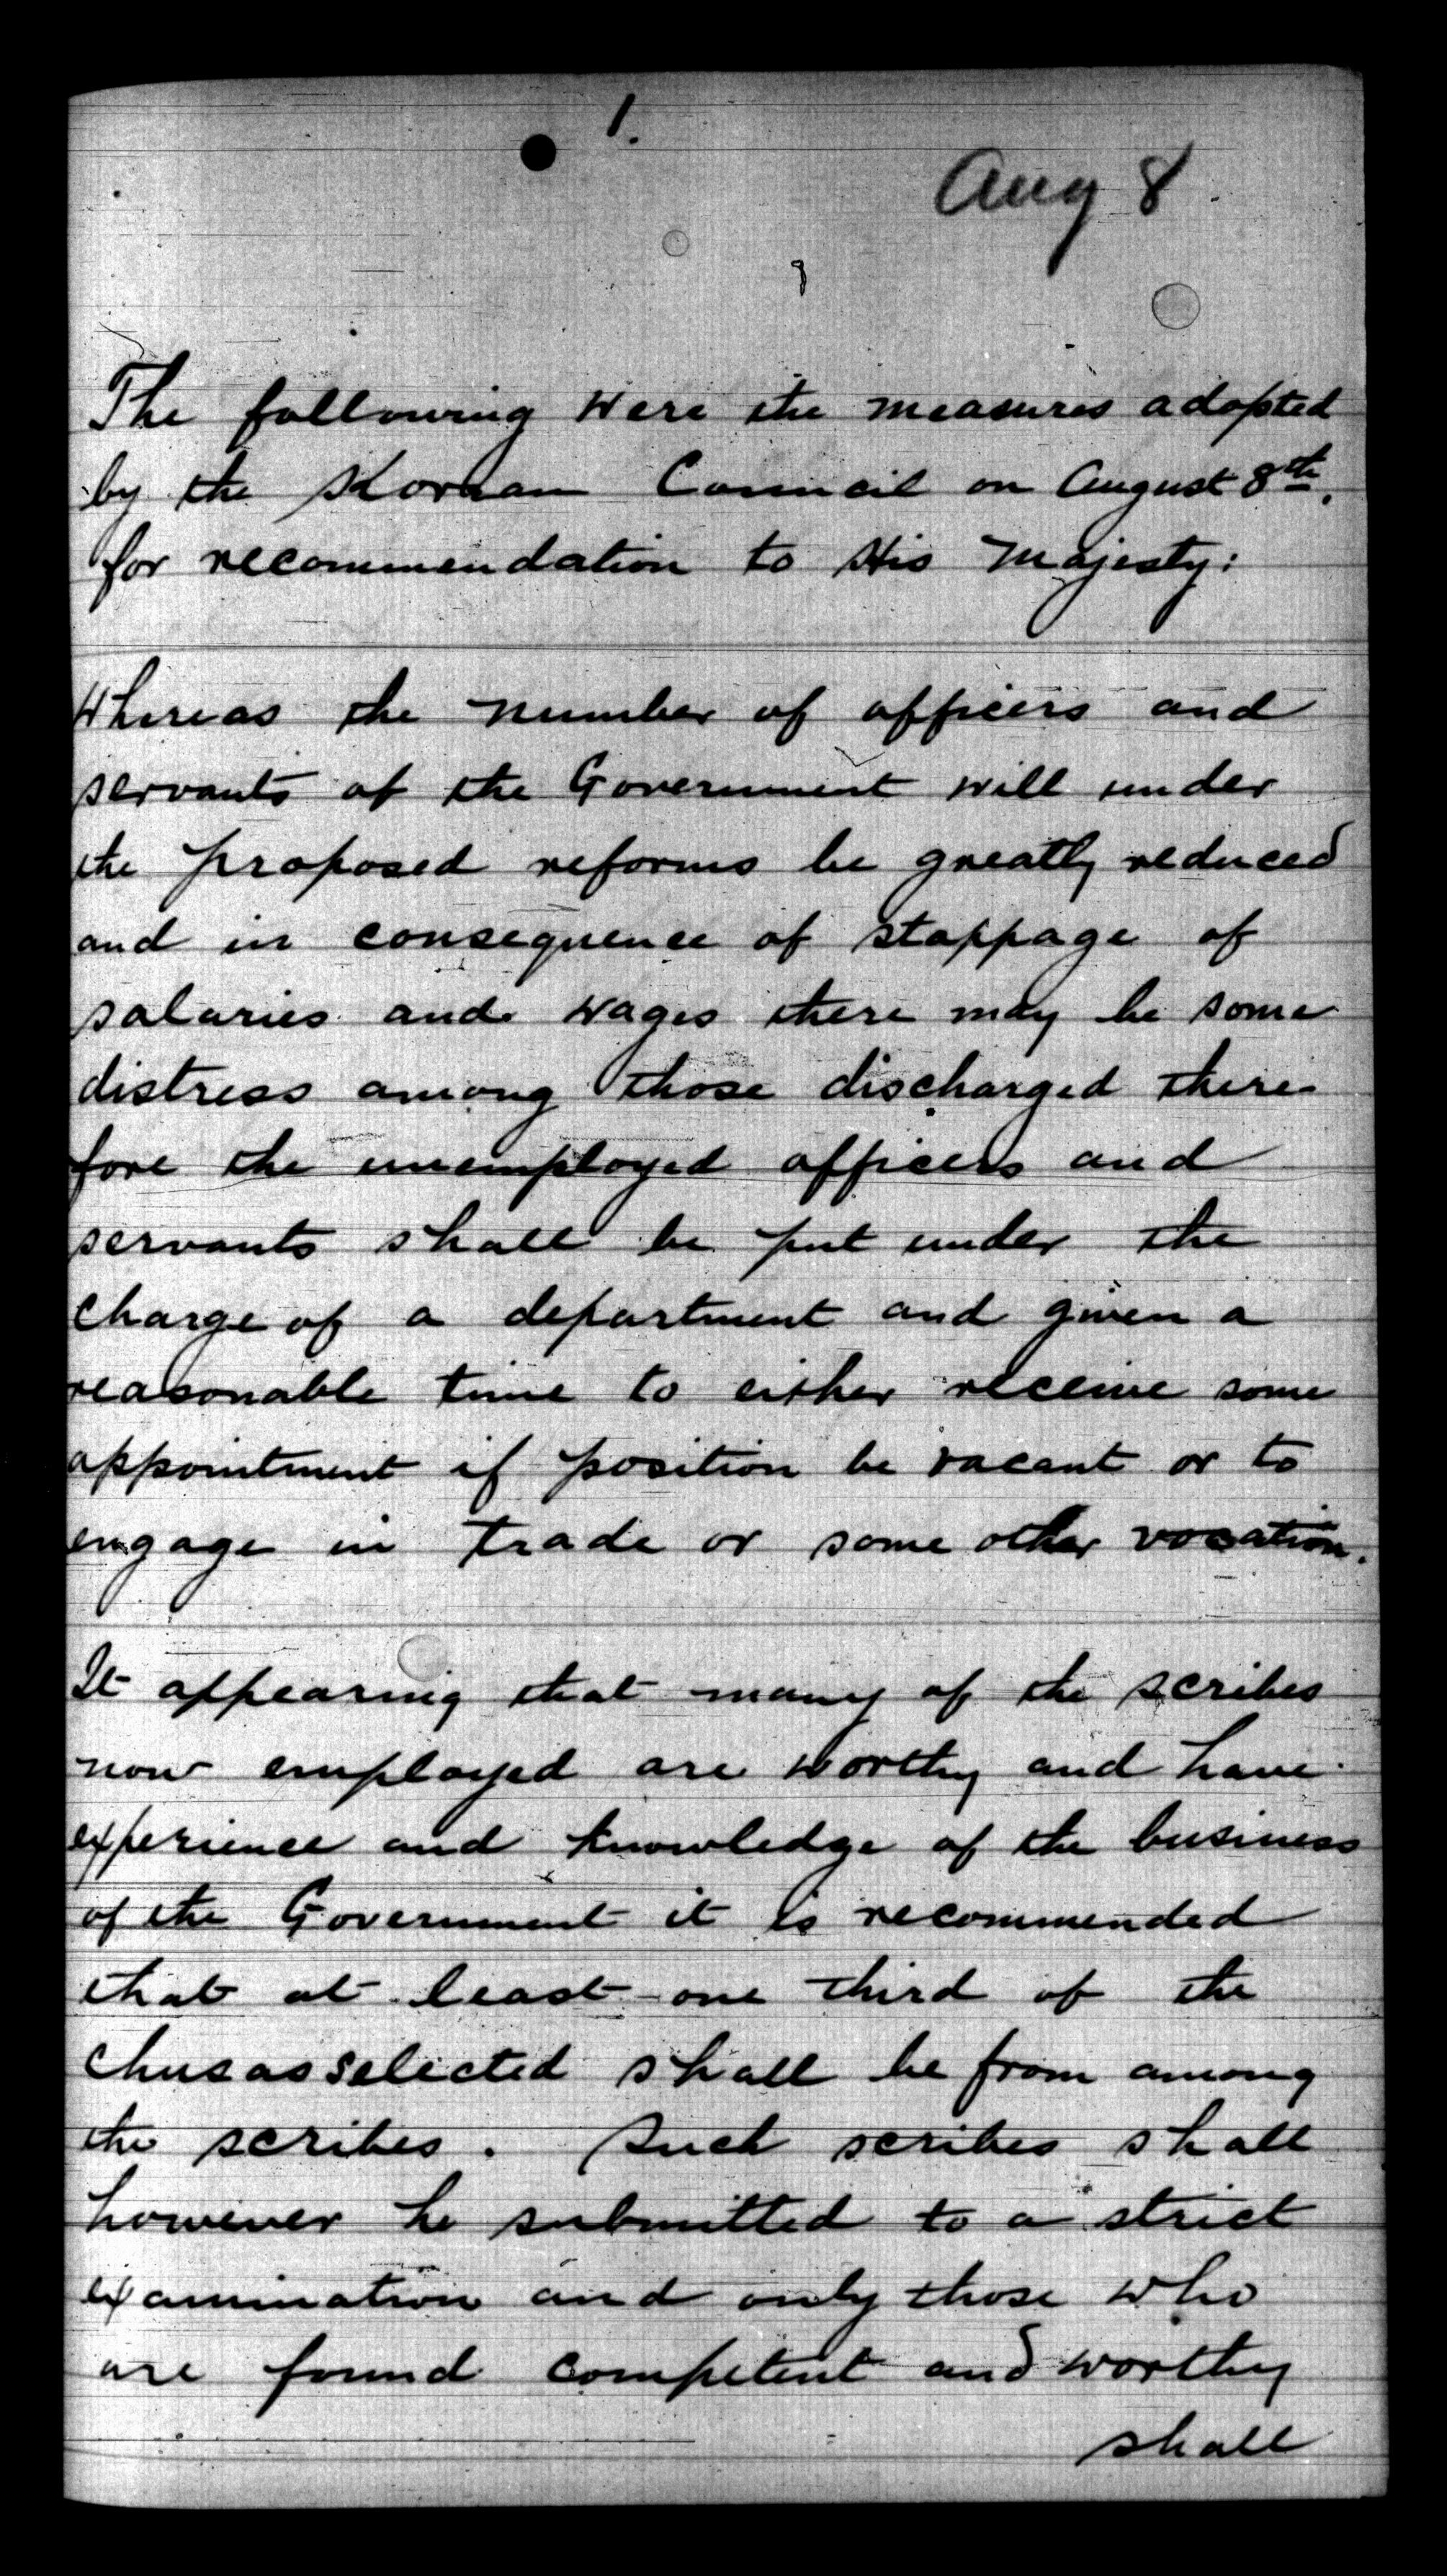 1.
Aug 8
The following were the measures adopted
by the Korean Council on August 8th.
for recommendation to His Majesty:
Whereas the number of officers and
servants of the Government will under
the proposed reforms be greatly reduced
and in consequence of stoppage of
salaries and wages there may be some
distress among those discharged there
fore the unemployed officers and
servants shall be put under the
charge of a department and given a
reasonable time to either receive some
appointment if position be vacant or to
engage in trade or some other vocation.
It appearing that many of the scribes
now employed are worthy and have
experience and knowledge of the business
of the Government it is recommended
that at least one third of the
chusas selected shall be from among
the scribes. Such scribes shall
however be submitted to a strict
examination and only those who
are found competent and worthy
shall